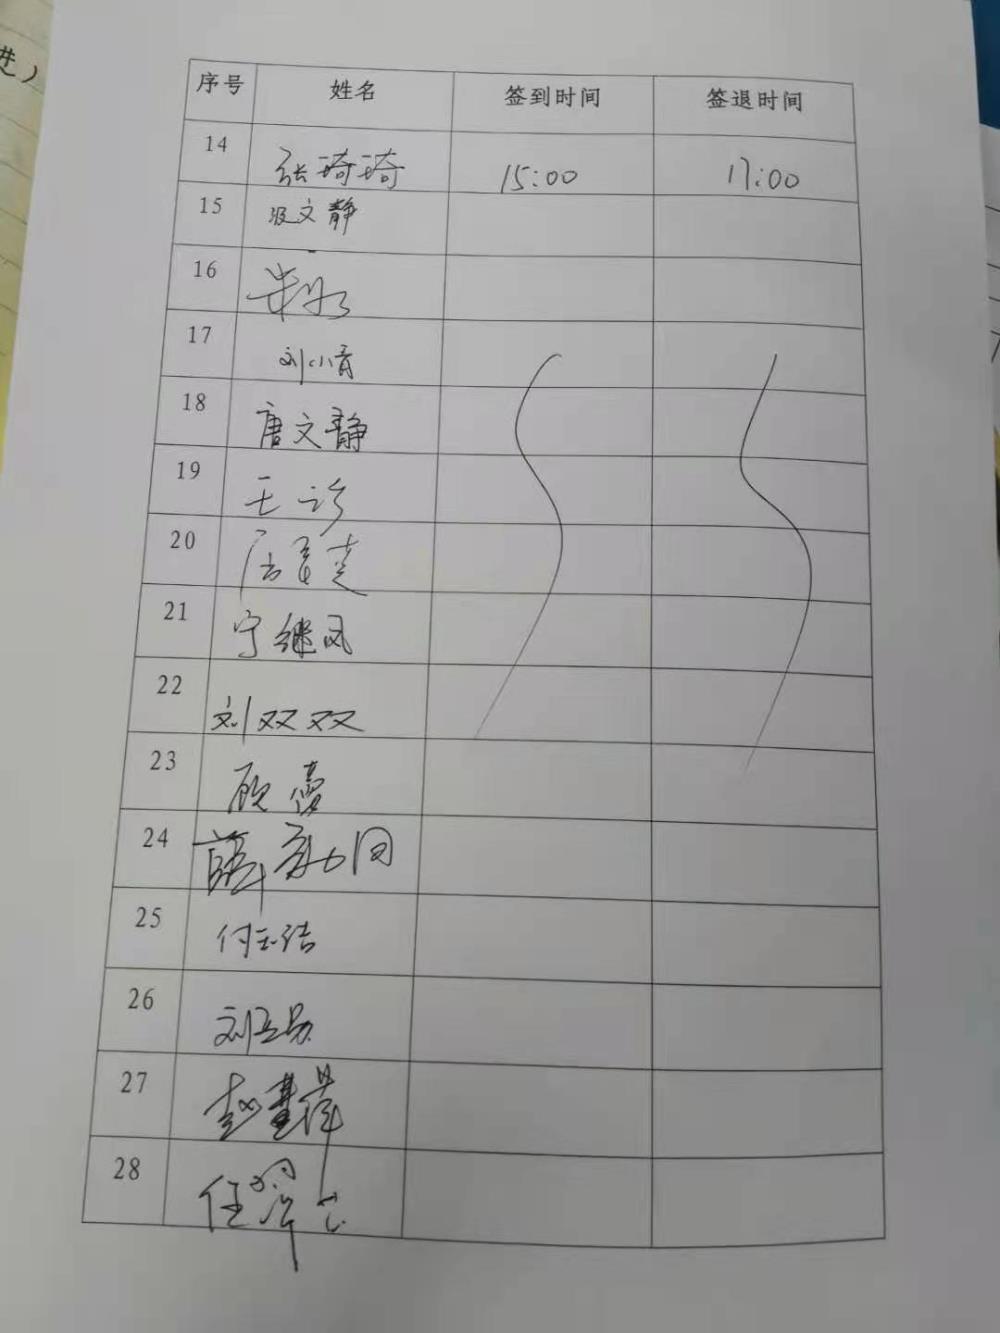 进）
序号 姓名 签到时间 签退时间
14 张琦琦 15:00 17:00
15 汲文静
16
17 刘小青
18 唐文静
19 王
20
21 宁继凤
22 刘双双
23 顾
24 薛
25 付玉洁
26 刘
27 赵慧萍
28 任